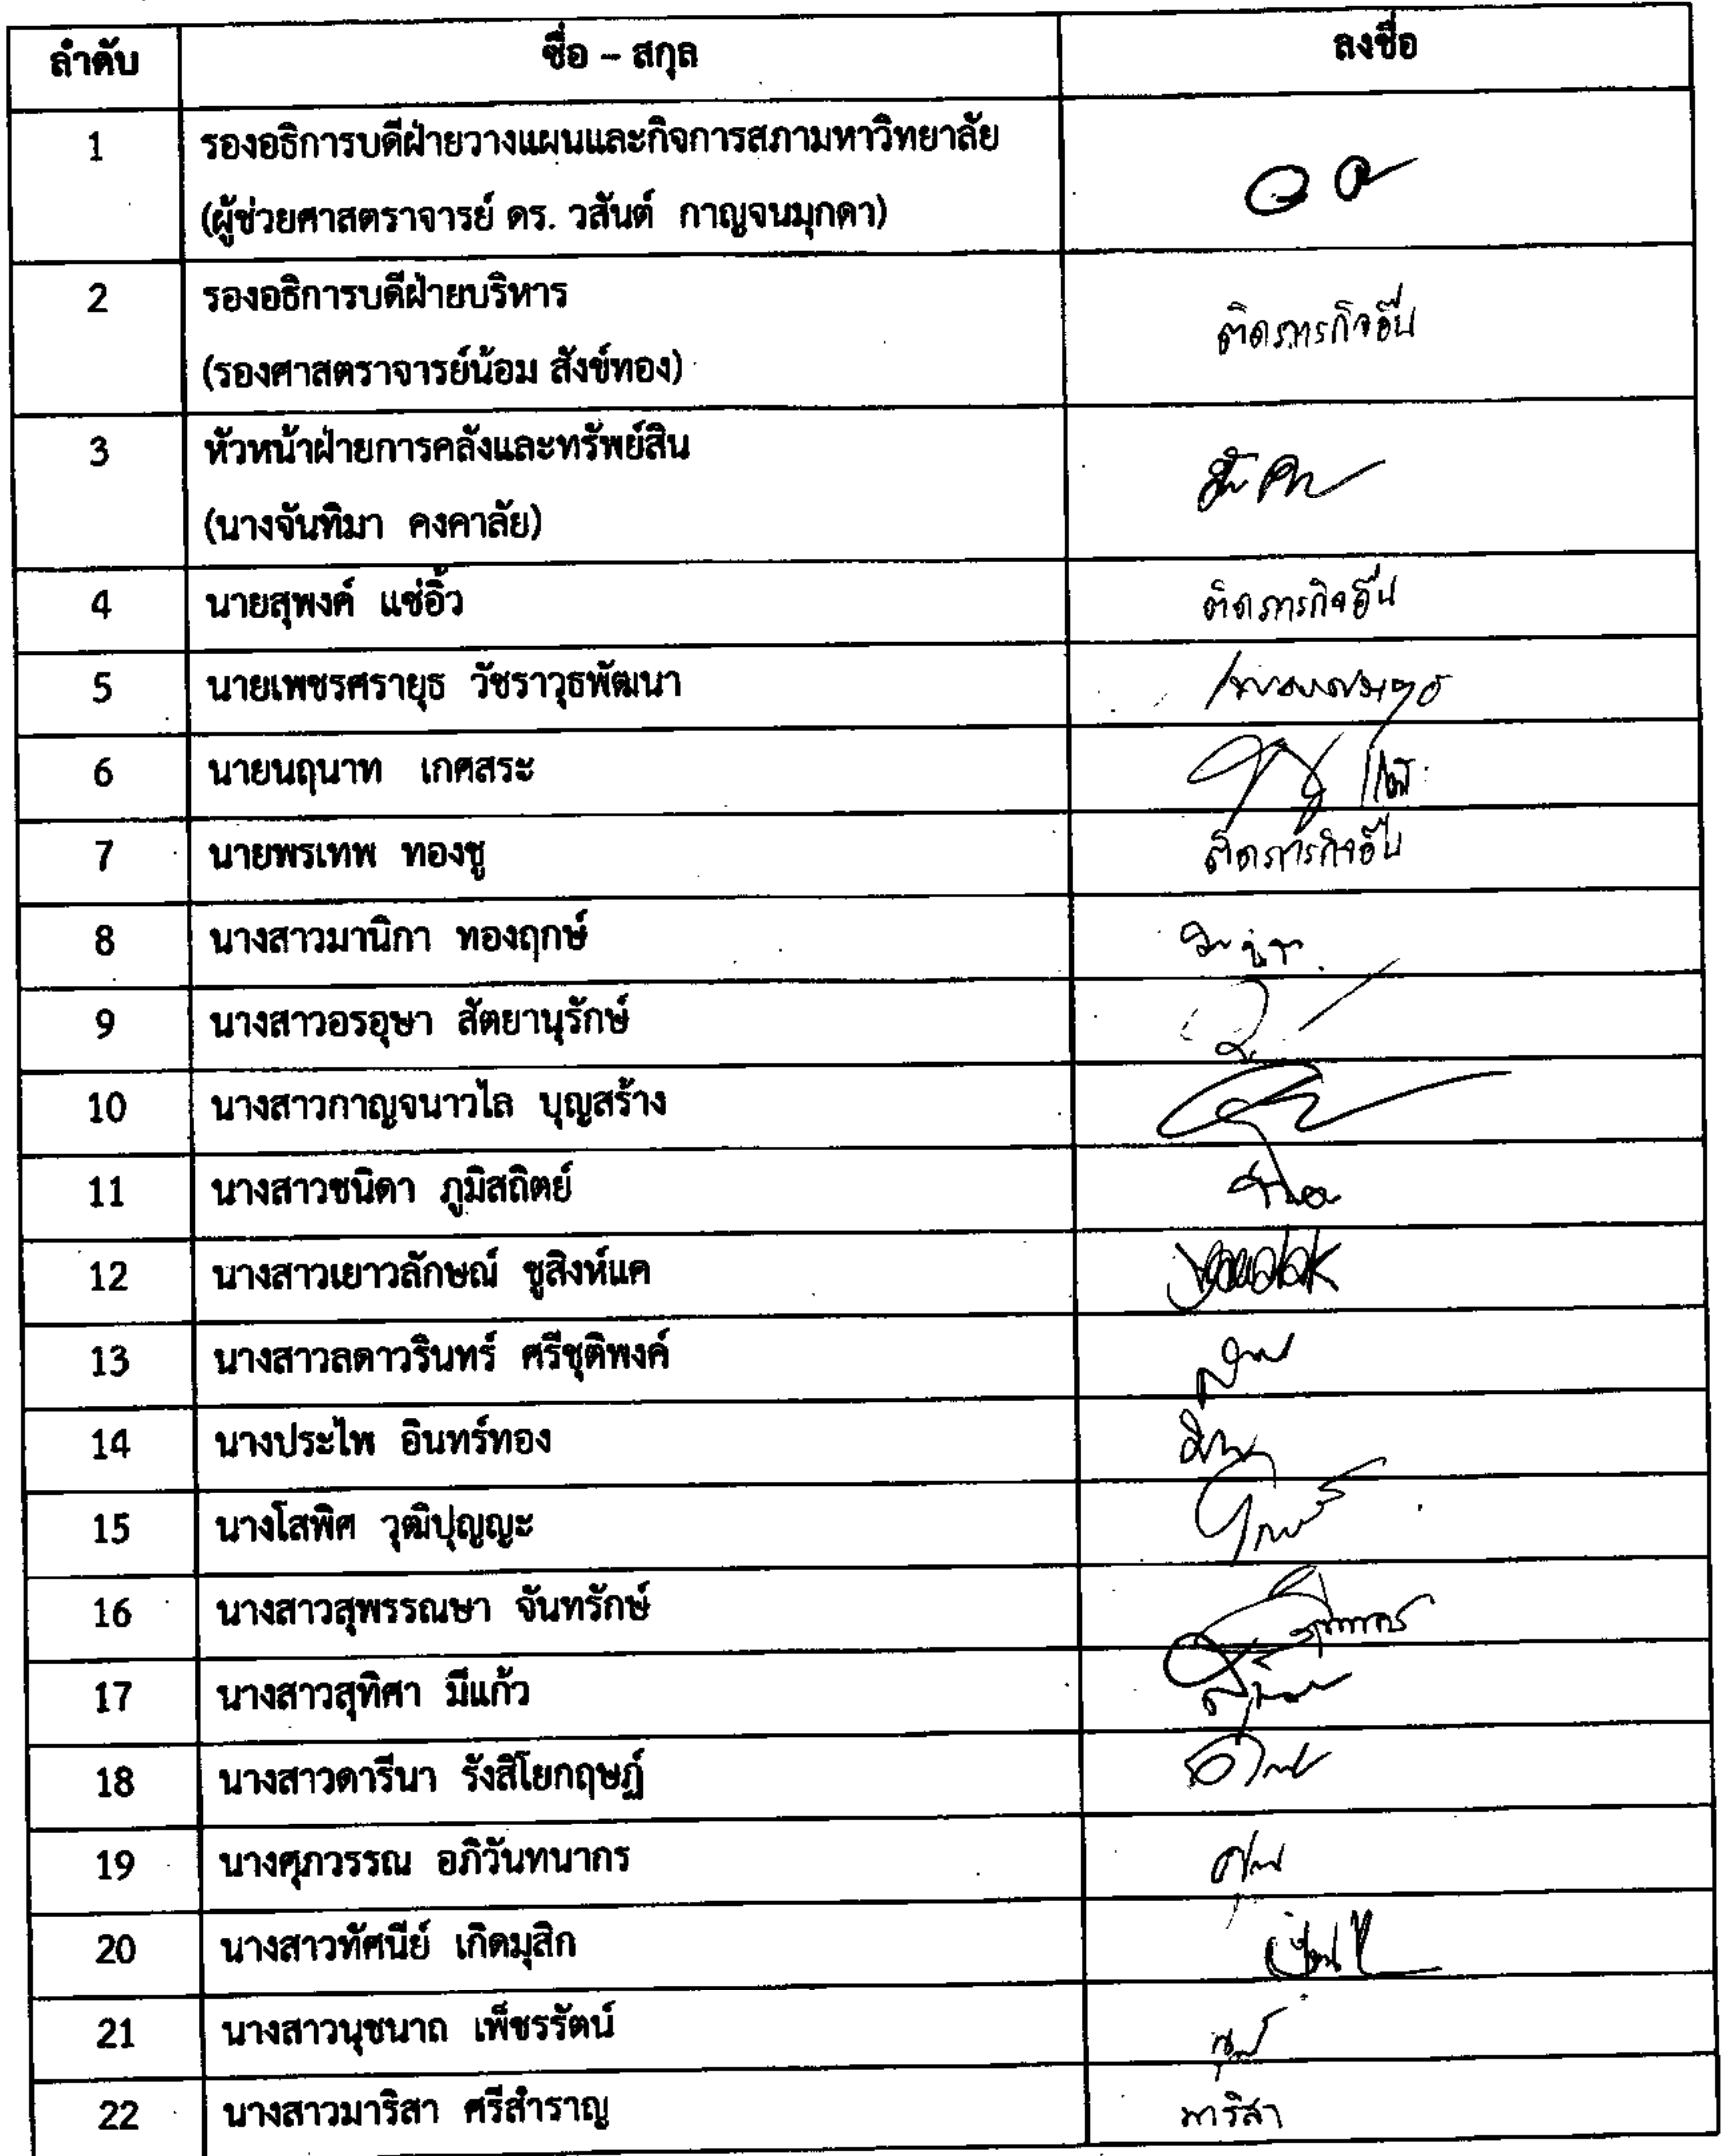 ลำดับ ชื่อ – สกุล ลงชื่อ
1 รองอธิการบดีฝ่ายวางแผนและกิจการสภามหาวิทยาลัย
(ผู้ช่วยศาสตราจารย์ ดร. วสันต์ กาญจนมุกดา)
2 รองอธิการบดีฝ่ายบริหาร ติดภารกิจอื่น
(รองศาสตราจารย์น้อม สังข์ทอง)
3 หัวหน้าฝ่ายการคลังและทรัพย์สิน
(นางจันทิมา คงคาลัย)
4 นายสุพงค์ แซ่อิ้ว ติดภารกิจอื่น
5 นายเพชรศรายุธ วัชราวุธพัฒนา
6 นายนฤนาท เกศสระ
7 นายพรเทพ ทองชู ติดภารกิจอื่น
8 นางสาวมานิกา ทองฤกษ์
9 นางสาวอรอุษา สัตยานุรักษ์
10 นางสาวกาญจนาวไล บุญสร้าง
11 นางสาวชนิดา ภูมิสถิตย์
12 นางสาวเยาวลักษณ์ ชูสิงห์แค Yaowalak
13 นางสาวลดาวรินทร์ ศรีชุติพงค์
14 นางประไพ อินทร์ทอง
15 นางโสพิศ วุฒิปุญญะ
16 นางสาวสุพรรณษา จันทรักษ์
17 นางสาวสุทิศา มีแก้ว
18 นางสาวดารีนา รังสิโยกฤษฎ์
19 นางศุภวรรณ อภิวันทนากร
20 นางสาวทัศนีย์ เกิดมุสิก
21 นางสาวนุชนาถ เพ็ชรรัตน์
22 นางสาวมาริสา ศรีสำราญ มาริสา